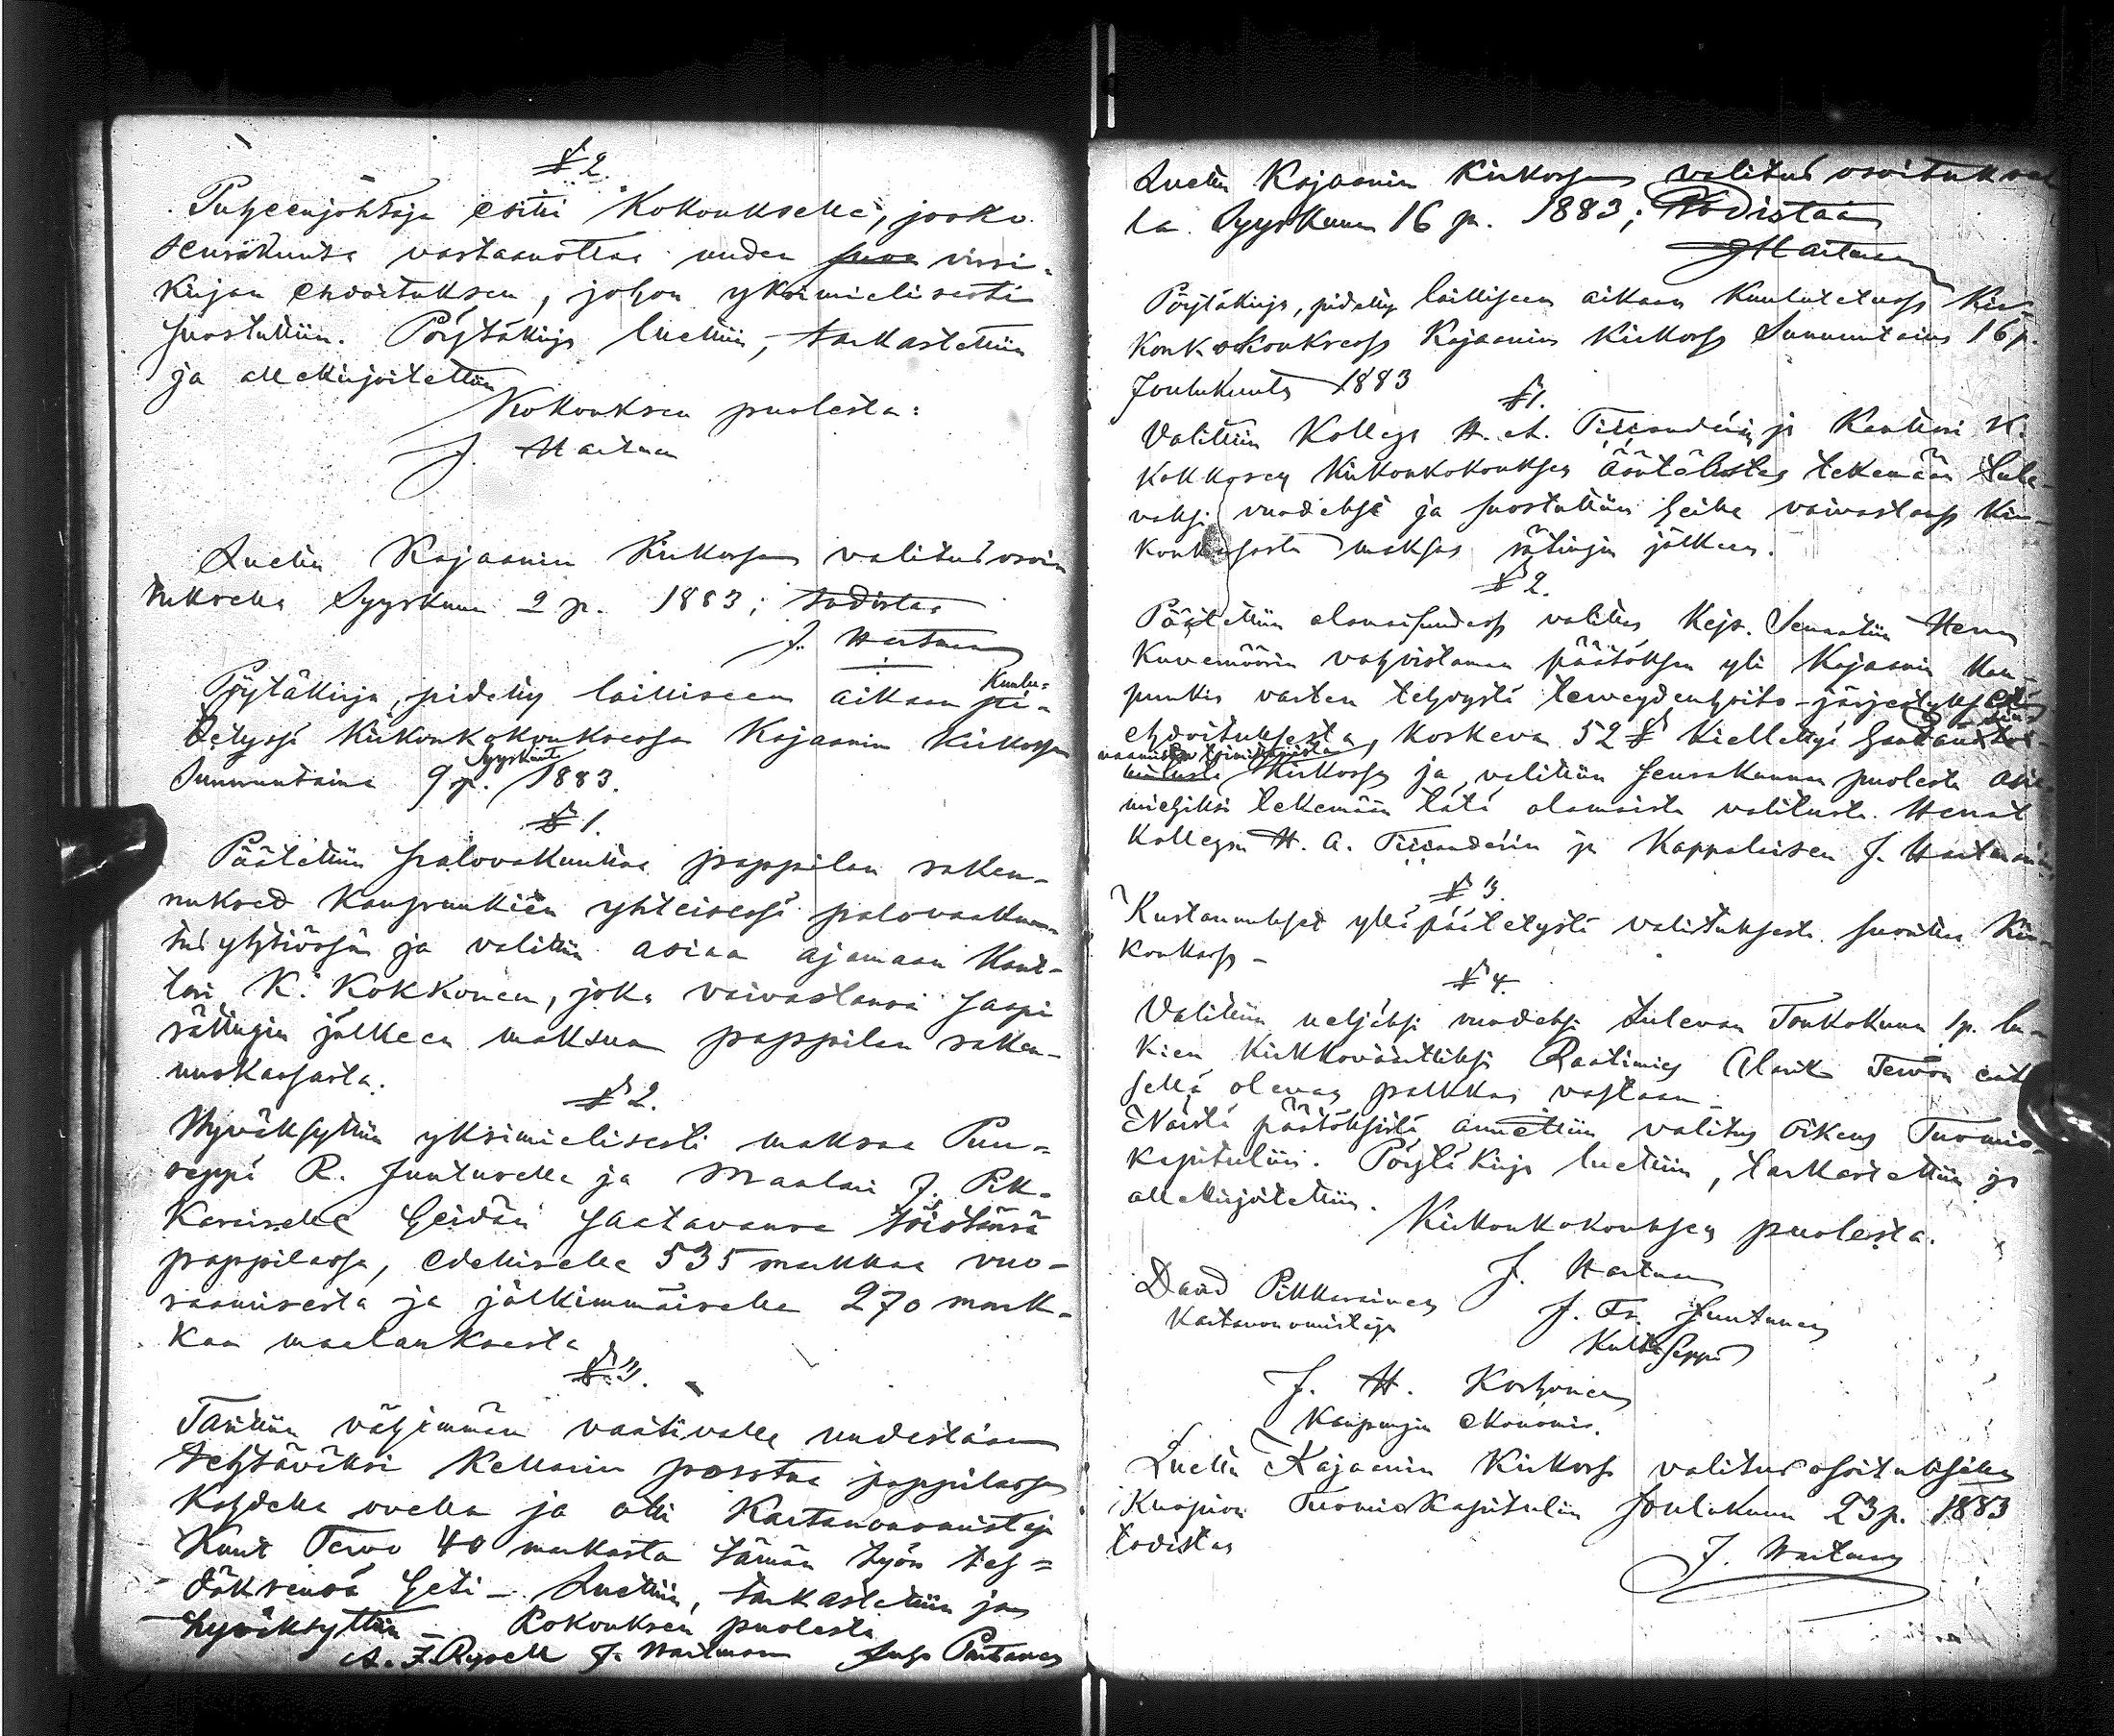 § 2.
Puheenjohtaja esitti Kokoukselle, josko
seurakunta vastaanottaa uuden virsi-
kirjan ehdoituksen, johon yksimielisesti
suostuttiin. Pöytäkirja luettiin, tarkastettiin
ja allekirjoitettiin
Kokouksen puolesta:
J. Hartman
Luettu Kajaanin Kirkossa valitus osoi-
tuksella Syyskuun 2 p. 1883; todistaa
J. Hartman
Pöytäkirja, pidetty lailliseen aikaan Kuulu-
tetyssä Kirkonkokouksessa Kajaanin Kirkossa
Sunnuntaina 9 p. Syyskuuta 1883.
§ 1.
Päätettiin palovakuuttaa pappilan raken-
nukset Kaupunkien yhteisessä palovakuu-
tus yhtiössä ja valittiin asiaa ajamaan Kant-
tori K. Kokkonen, joka vaivastansa saapi
rätingin jälkeen maksun pappilan raken-
nuskassasta.
§ 2.
Hyväksyttiin yksimielisesti maksaa Puu-
seppä R. Juntuselle ja Maalari J. Pik-
karaiselle heidän saatavansa töistänsä
pappilassa, edelliselle 535 markkaa vuo-
raamisesta ja jälkimmäiselle 270 mark-
kaa maalauksesta
§ 3.
Tarittiin vähimmän vaativalle uudestaan
tehtäväksi Kellarin porstua pappilassa
Kahdella ovella ja otti Kartanonomistaja
Knut Tervo 40 markasta tämän työn teh-
däksensä heti – Luettiin, tarkastettiin ja
hyväksyttiin – Kokouksen puolesta
A. F. Rysell J. Hartman Juho Partanen
Luettu Kajaanin Kirkossa valitus osoituksel-
la Syyskuun 16 p. 1883; Todistaa
J Hartman
Pöytäkirja, pidetty lailliseen aikaan Kuulutetussa Kir-
konkokouksessa Kajaanin Kirkossa Sunnuntaina 16 p.
Joulukuuta 1883
§ 1.
Valittiin Kollega H. A. Tiliander ja Kanttori K.
Kokkosen Kirkonkokouksen ääntölistaa tekemään tule-
vaksi vuodeksi ja suostuttiin heille vaivastansa Kir-
konkassasta maksaa rätingin jälkeen.
§ 2.
Päätettiin alamaisuudessa valittaa Keis. Senaatiin Herra
Kuvernöörin vahvistaman päätöksen yli Kajaanin Kau-
punkia varten tehdystä terveydenhoito-järjestyksen
ehdoituksesta, koskeva 52 § kiellettyä
Kirkossa ja valittiin Seurakunnan puolesta asia-
miehiksi tekemään tätä alamaista valitusta Herrat
Kollegan H. A. Tiliander'in ja Kappalaisen J. Hartman'in
§ 3.
Kustannukset ylläpäätetystä valituksesta suorittaa Kir-
konkassa –
§ 4.
Valittiin neljäksi vuodeksi tulevan Toukokuun 1 p. lu-
kien Kirkkoväärtiksi Raatimies Alarik Tervon enti-
sellä olevaa palkkaa vastaan.
Näistä päätöksistä annettiin valitus oikeus Tuomio-
kapituliin. Pöytäkirja luettiin, tarkastettiin ja
allekirjoitettiin.
Kirkonkokouksen puolesta.
J. Hartman
David Pikkarainen
Kartanonomistaja
J. Fr. Juntunen
Kultaseppä
J. H. Korhonen
Kaupungin ekonomi.
Luettu Kajaanin Kirkossa valitus osoituksella
Kuopion Tuomiokapituliin Joulukuun 23 p. 1883
todistaa
J. Hartman